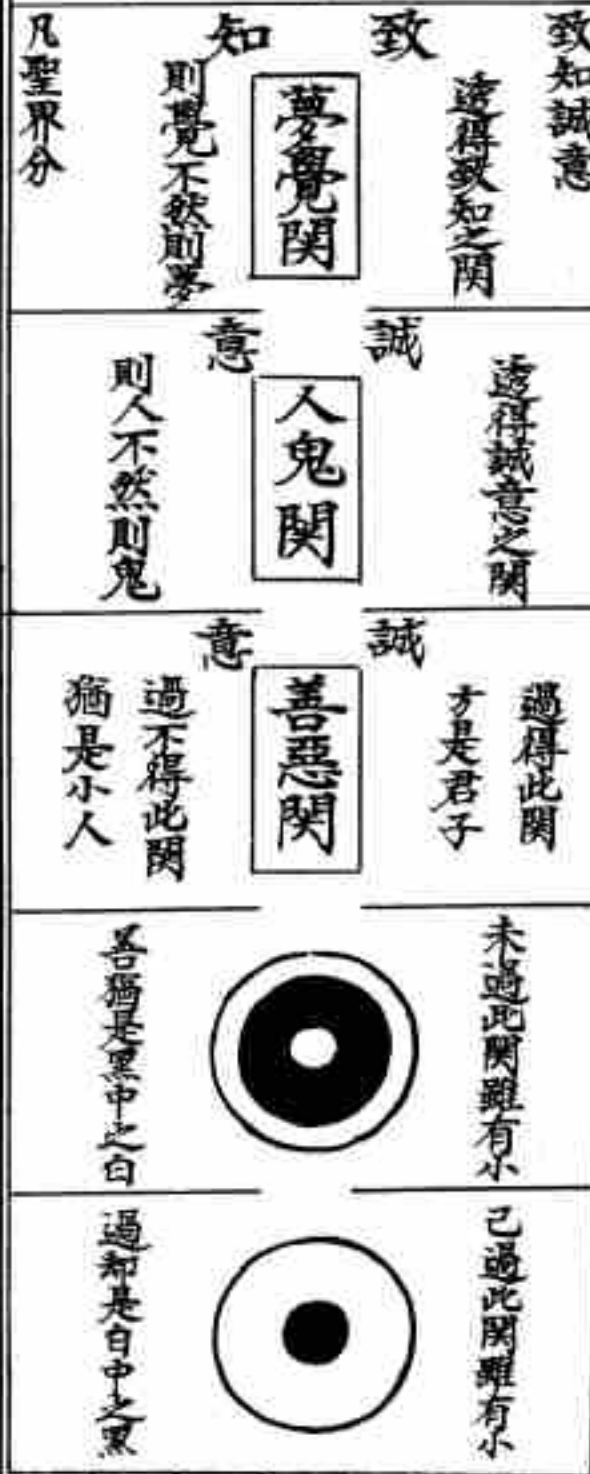 致知誠意
致知
透得致知之関
夢覺関
則覺不然則夢
凡聖界分
誠意
透得誠意之関
人鬼関
則人不然則鬼
誠意
過得此関
方是君子
善惡関
過不得此関
猶是小人
未過此関雖有小
善猶是黑中之白
己過此関雖有小
過却是白中之黑